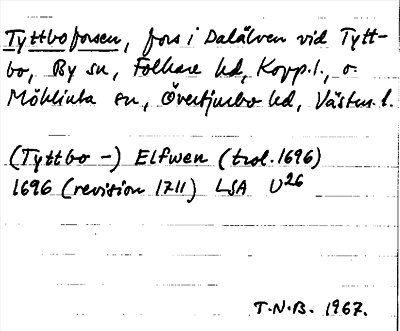 Tyttboforsen, fors i Dalälven vid Tytt-
bo, By sn, Folkare hd, Kopp.l., o.
Möklinta sn, Övertjurbo hd, Västm.l.
(Tyttbo -) Elfwen (trol. 1696)
1696 (revision 1711) LSA U26
T.N.B. 1967.